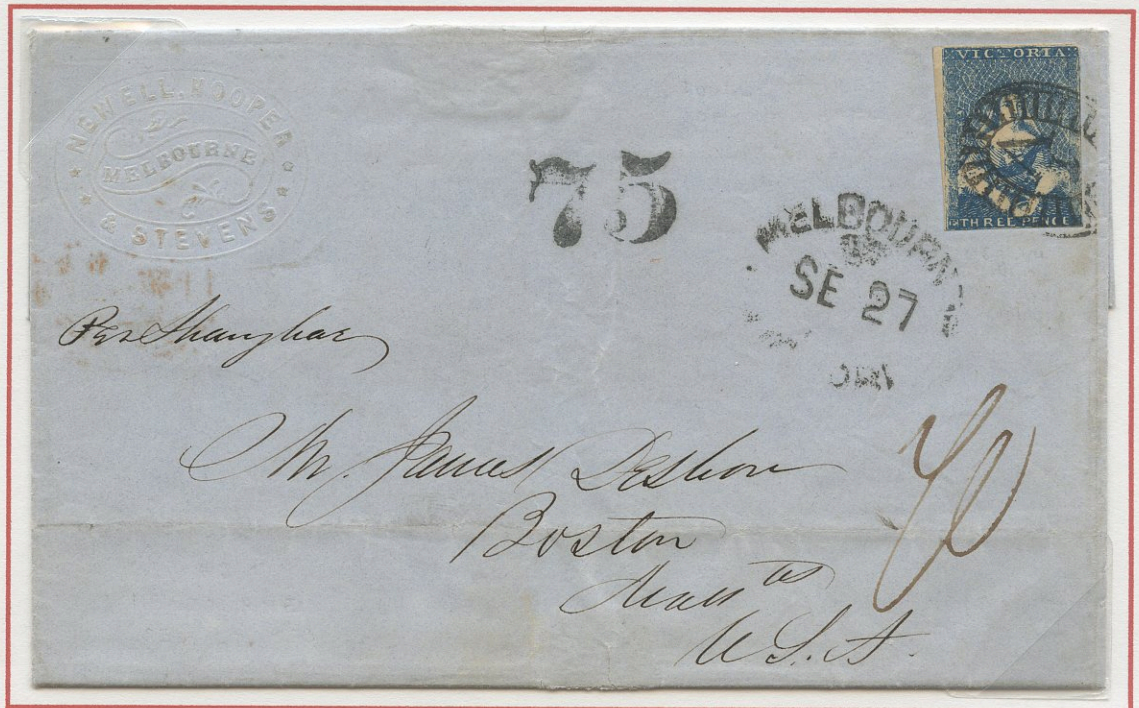 NEWELL, HOOPER
MELBOURNE
& STEVENS
VICTORIA
THREE PENCE
75
MELBOURN
SE 27
Per Shanghae
Mr. James
Boston
U.S.A.